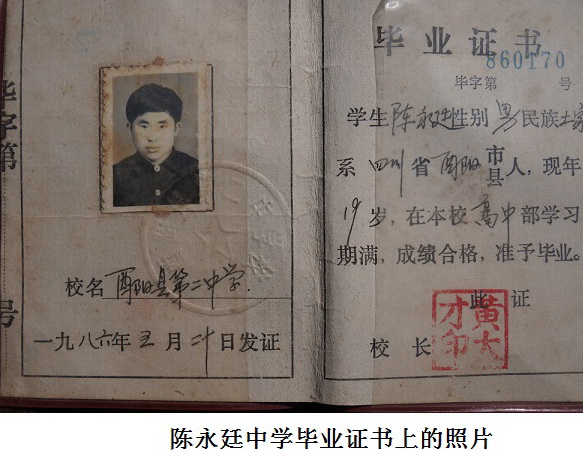 毕字第
号
校名 酉阳县第二中学
一九八六年五月二十日发证
毕业证书
860170
毕字第 号
学生陈永廷性别男民族土家
系四川省酉阳市县人,现年
19岁,在本校高中部学习
期满,成绩合格,准予毕业。
此证
校长
黄大才印
陈永廷中学毕业证书上的照片